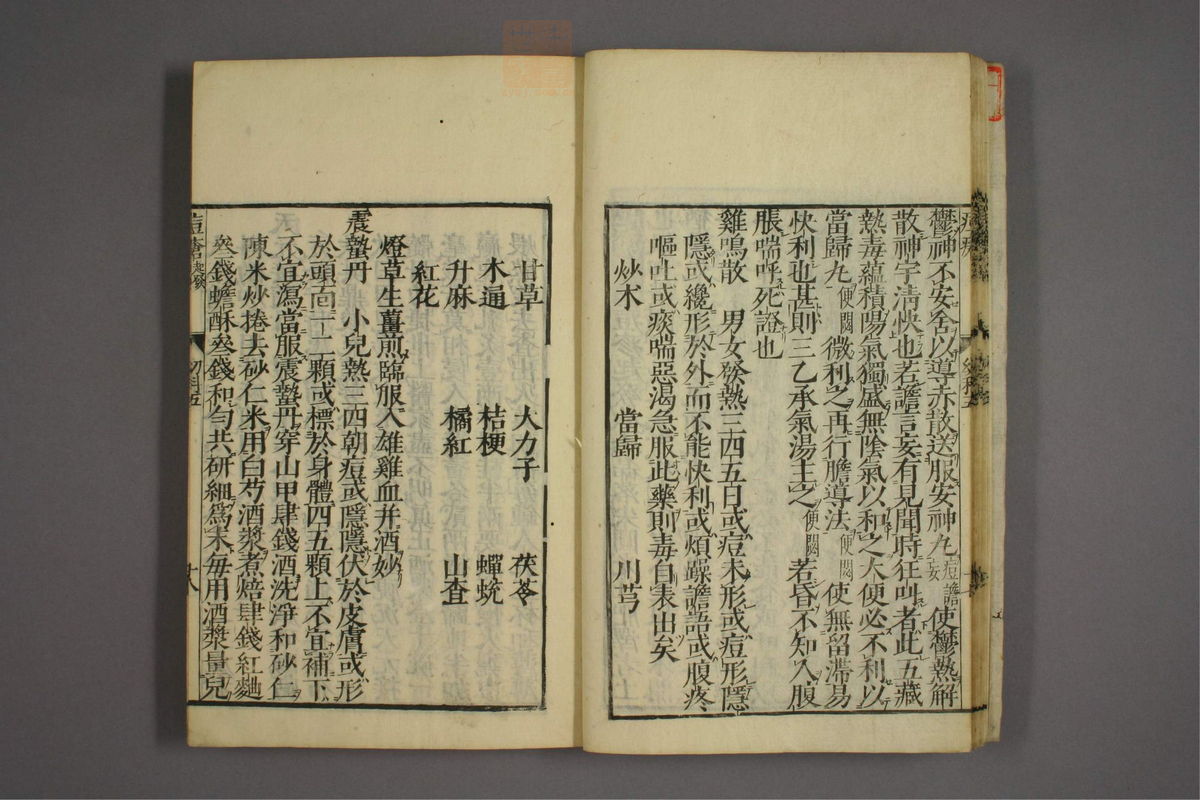 鬱神不安舍以導赤散送服安神丸痘譫妄使鬱熱解
散神宇清快也若譫言妄有見聞時狂叫者此五藏
熱毒蘊積陽氣獨盛無陰氣以和之大便必不利以
當歸丸便閟微利之再行膽導法便閟使無留滯易
快利也甚則三乙承氣湯主之便閟若昏不知人腹
脹喘呼死證也
雞鳴散 男女發熱三四五日或痘未形或痘形隱
隱或纔形於外而不能快利或煩躁譫語或腹疼
嘔吐或痰喘惡渴急服此藥則毒自表出矣
炒朮 當歸 川芎
甘草 大力子 茯苓
木通 桔梗 蟬蛻
升麻 橘紅 山查
紅花
燈草生薑煎臨服入雄雞血并酒妙
震蟄丹 小兒熱三四朝痘或隱隱伏於皮膚或形
於頭面十二顆或標於身體四五顆上不宜補下
不宜瀉當服震蟄丹穿山甲肆錢酒洗淨和砂仁
陳米炒捲去砂仁米用白芍酒漿煮焙肆錢紅麯
叄錢蟾酥叄錢和勻共研細爲末每用酒漿量兒
幼科五